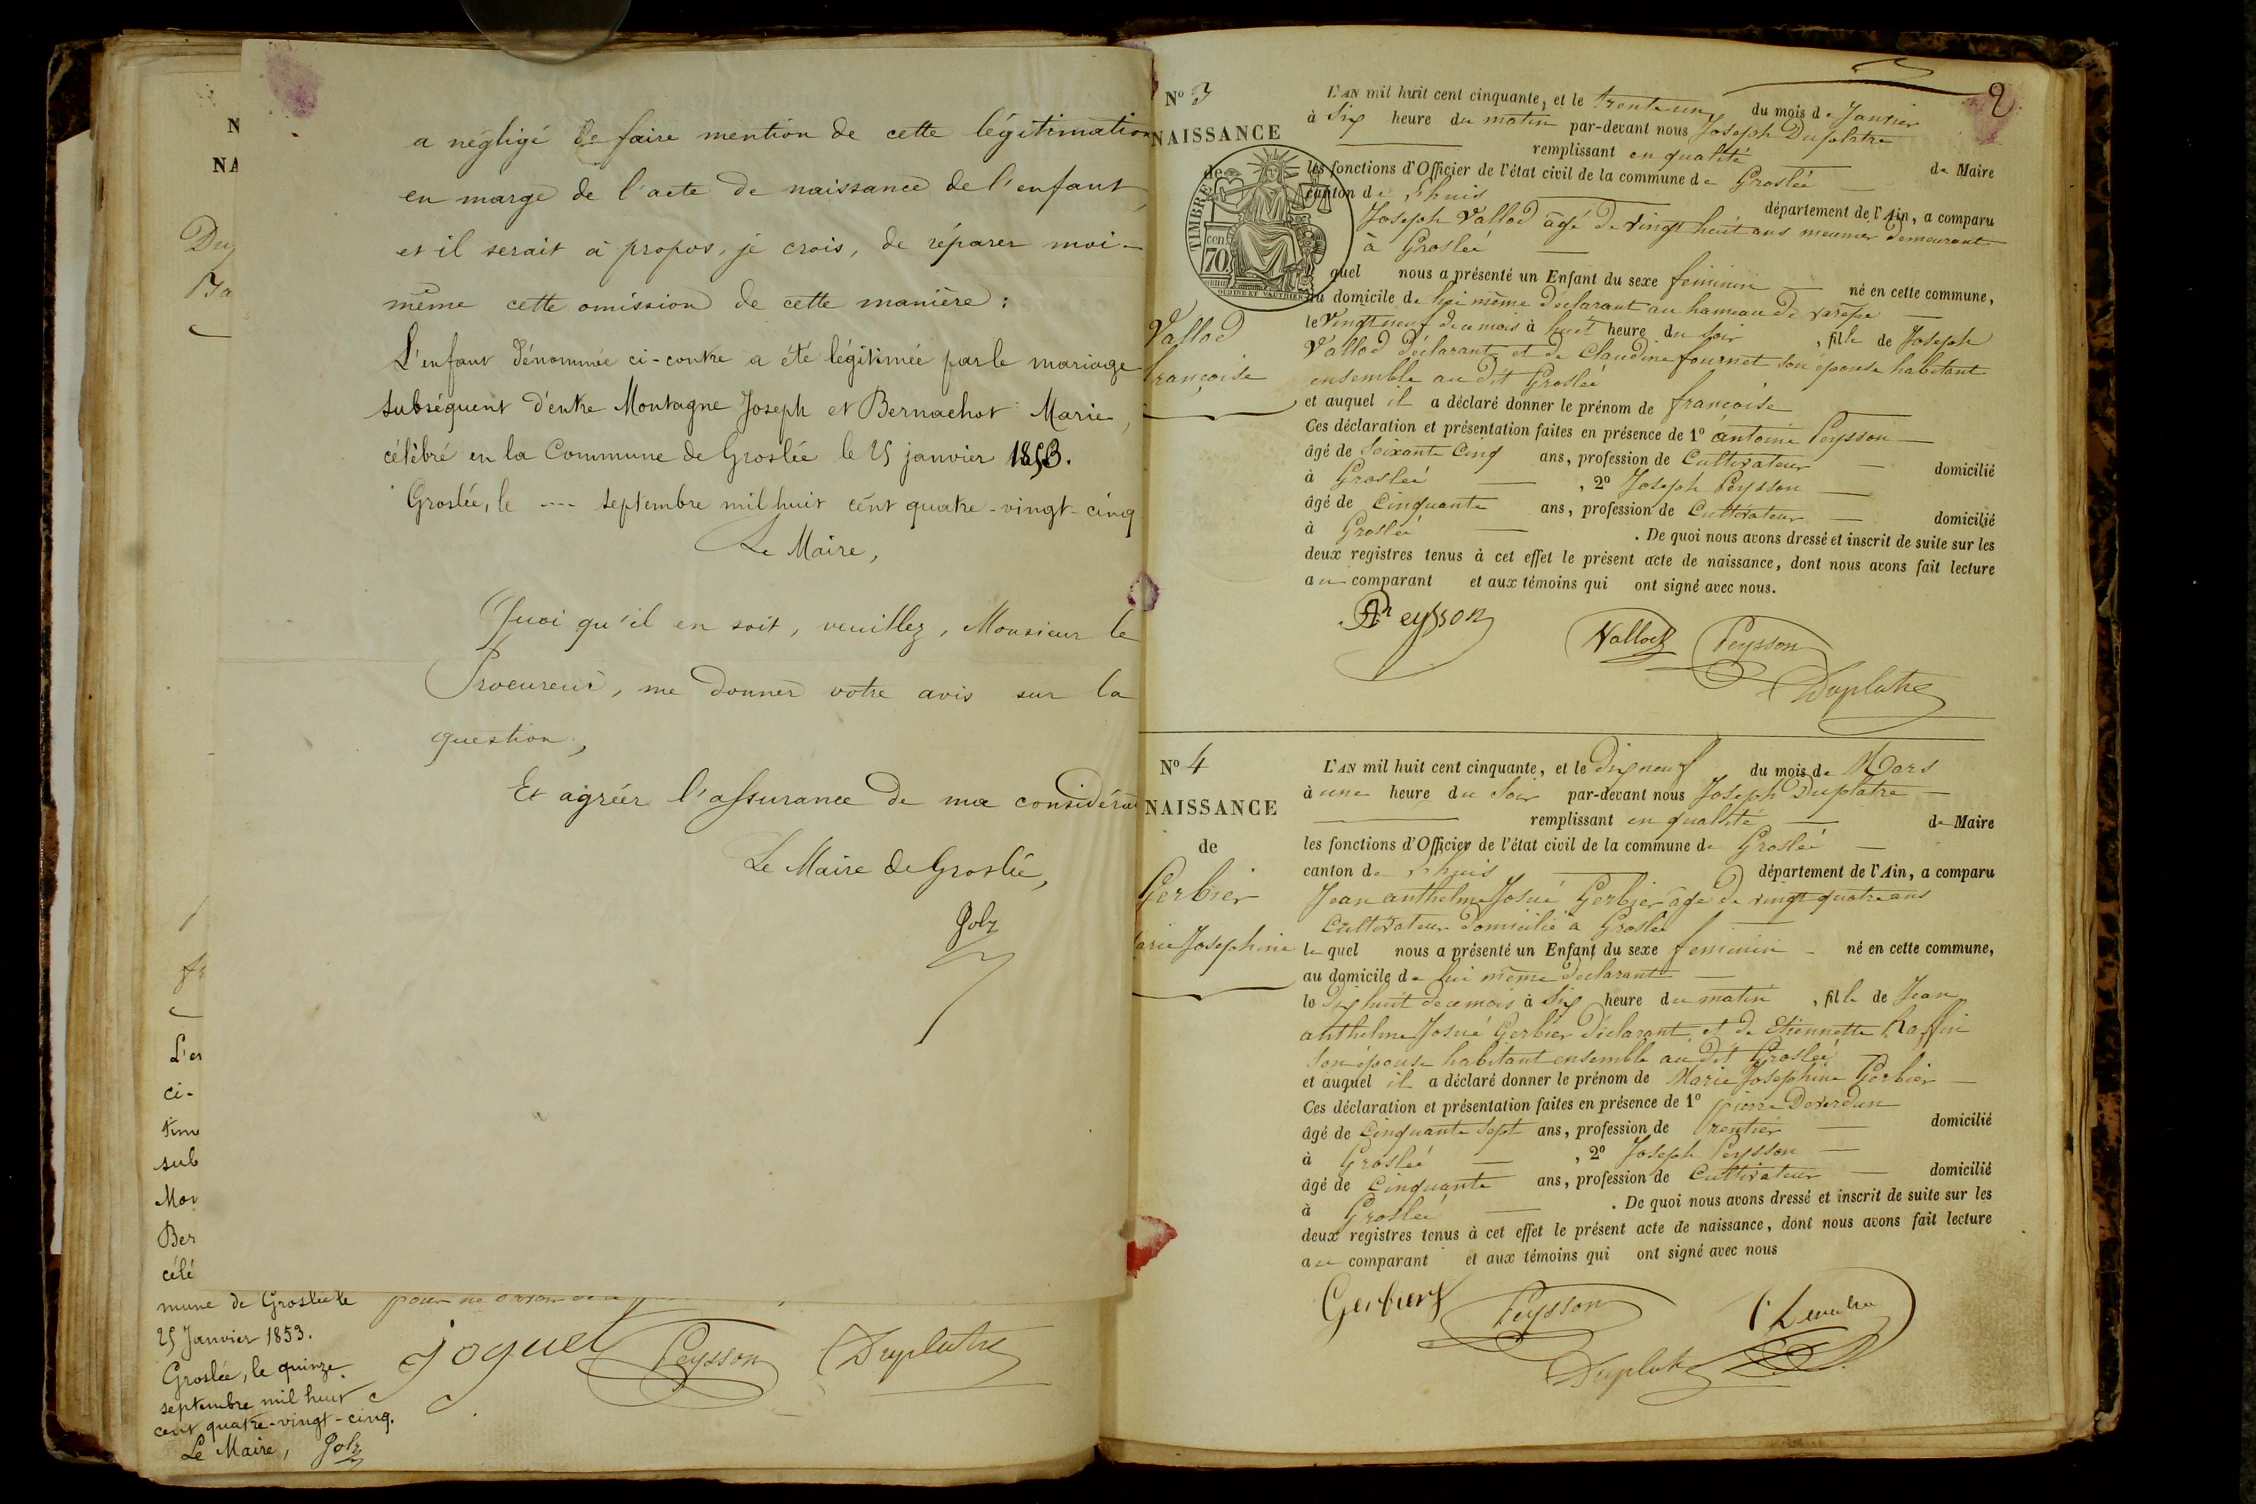 a négligé de faire mention de cette légitimation
en marge de l'acte de naissance de l'enfant,
et il serait à propos, je crois, de réparer moi-
même cette omission de cette manière :
L'enfant dénommée ci-contre a été légitimée par le mariage
subséquent d'entre Montagne Joseph et Bernachot Marie,
célébré en la Commune de Groslée le 25 janvier 1853.
Groslée, le ---- septembre mil huit cent quatre-vingt-cinq
Le Maire,
Quoi qu'il en soit, veuillez, Monsieur le
Procureur, me donner votre avis sur la
question,
Et agréer l'assurance de ma considérat
Le Maire de Groslée,
Joly
N
NA
Du
L'en
ci-
time
sub
Mon
Ber
célé
mune de Groslée le
25 Janvier 1853.
Groslée, le quinze
septembre mil huit
cent quatre-vingt-cinq.
Le Maire, Joly
joguet Peysson Duplatre
2
N° 3
NAISSANCE
de
TIMBRE
70
cen.
Vallod
françoise
L'AN mil huit cent cinquante, et le trente un du mois de Janvier
à Six heure du matin par-devant nous Joseph Duplatre
remplissant en qualité de Maire
les fonctions d'Officier de l'état civil de la commune de Groslée
canton de Lhuis département de l'Ain, a comparu
Joseph Vallod âgé de vingt huit ans meunier demeurant
à Groslée
quel nous a présenté un Enfant du sexe feminin né en cette commune,
au domicile de lui même déclarant au hameau de
le Vingt neuf de ce mois à huit heure du soir, fille de Joseph
Vallod déclarant et de Claudine fournet son épouse habitant
ensemble au dit Groslée
et auquel il a déclaré donner le prénom de françoise
Ces déclaration et présentation faites en présence de 1° antoine Peysson
âgé de Soixante Cinq ans, profession de Cultivateur domicilié
à Groslée, 2° Joseph Peysson
âgé de Cinquante ans, profession de Cultivateur domicilié
à Groslée. De quoi nous avons dressé et inscrit de suite sur les
deux registres tenus à cet effet le présent acte de naissance, dont nous avons fait lecture
au comparant et aux témoins qui ont signé avec nous.
Peysson
Vallod Peysson
Duplatre
N° 4
NAISSANCE
de
Gerbier
arie Josephine
L'AN mil huit cent cinquante, et le dix neuf du mois de Mars
à une heure du Soir par-devant nous Joseph Duplatre
remplissant en qualité de Maire
les fonctions d'Officier de l'état civil de la commune de Groslée
canton de Lhuis département de l'Ain, a comparu
Jean anthelme Josué Gerbier âgé de vingt quatre ans
Cultivateur domicilié à Groslée
le quel nous a présenté un Enfant du sexe feminin né en cette commune,
au domicile de lui même declarant
le dix huit de ce mois à Six heure du matin, fille de Jean
anthelme Josué Gerbier déclarant et de Etiennette
son épouse habitant ensemble au dit Groslée
et auquel il a déclaré donner le prénom de Marie Josephine Gerbier
Ces déclaration et présentation faites en présence de 1° pierre
âgé de Cinquante Sept ans, profession de rentier domicilié
à Groslée, 2° Joseph Peysson
âgé de Cinquante ans, profession de Cultivateur domicilié
à Groslée. De quoi nous avons dressé et inscrit de suite sur les
deux registres tenus à cet effet le présent acte de naissance, dont nous avons fait lecture
au comparant et aux témoins qui ont signé avec nous
Gerbier Peysson
Duplatre